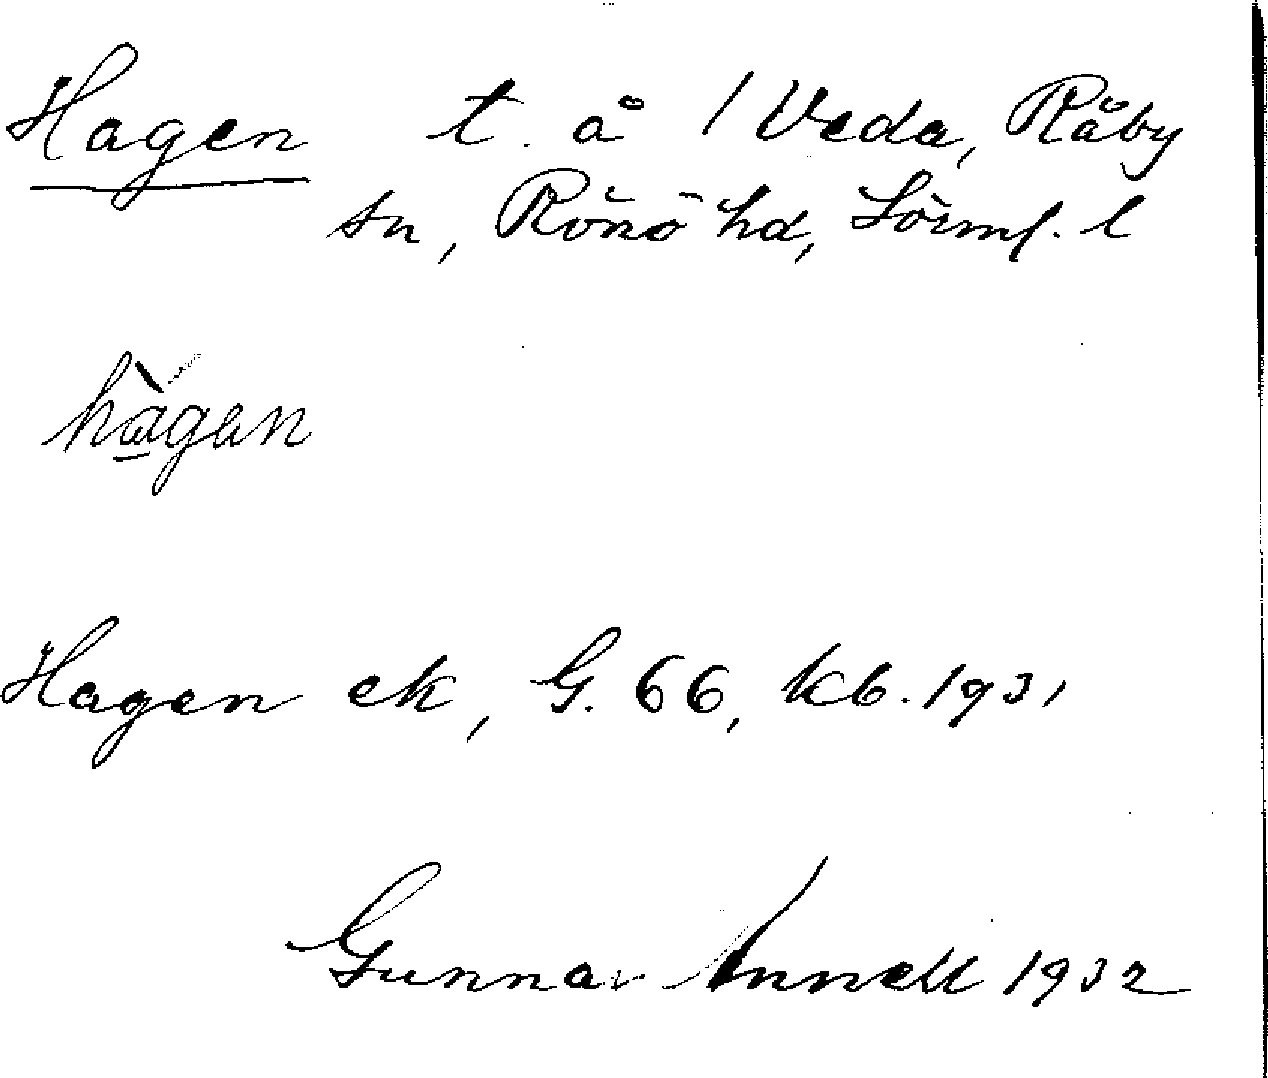 Hagen t. å 1 Veda, Råby
sn, Rönö hd, Sörml. l
hagan
Hagen ek, G. 66, kb. 1931
Gunnar Annell 1932